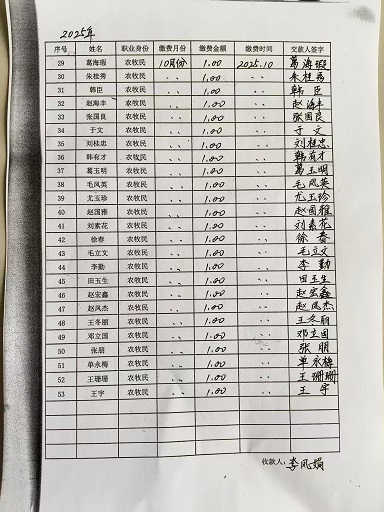 2025年
序号 姓名 职业身份 缴费月份 缴费金额 缴费时间 交款人签字
29 葛海瑕 农牧民 10月份 1.00 2025.10 葛海瑕
30 朱桂秀 农牧民 〃 1.00 〃 朱桂秀
31 韩臣 农牧民 〃 1.00 〃 韩臣
32 赵海丰 农牧民 〃 1.00 〃 赵海丰
33 张国良 农牧民 〃 1.00 〃 张国良
34 于文 农牧民 〃 1.00 〃 于文
35 刘桂忠 农牧民 〃 1.00 〃 刘桂忠
36 韩有才 农牧民 〃 1.00 〃 韩有才
37 葛玉明 农牧民 〃 1.00 〃 葛玉明
38 毛凤英 农牧民 〃 1.00 〃 毛凤英
39 尤玉珍 农牧民 〃 1.00 〃 尤玉珍
40 赵国雅 农牧民 〃 1.00 〃 赵国雅
41 刘素花 农牧民 〃 1.00 〃 刘素花
42 徐春 农牧民 〃 1.00 〃 徐春
43 毛立文 农牧民 〃 1.00 〃 毛立文
44 李勤 农牧民 〃 1.00 〃 李勤
45 田玉生 农牧民 〃 1.00 〃 田玉生
46 赵宏鑫 农牧民 〃 1.00 〃 赵宏鑫
47 赵凤杰 农牧民 〃 1.00 〃 赵凤杰
48 王冬丽 农牧民 〃 1.00 〃 王冬丽
49 邓立国 农牧民 〃 1.00 〃 邓立国
50 张朋 农牧民 〃 1.00 〃 张朋
51 单永梅 农牧民 〃 1.00 〃 单永梅
52 王珊珊 农牧民 〃 1.00 〃 王珊珊
53 王宇 农牧民 〃 1.00 〃 王宇
收款人：李凤娟